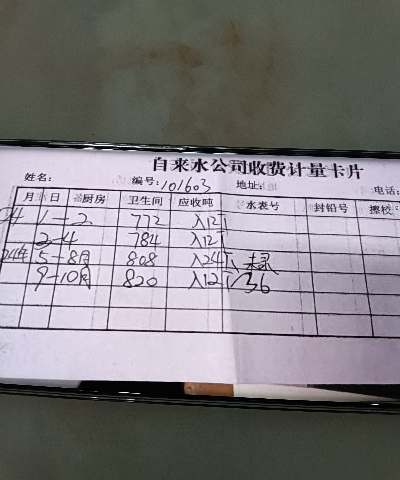 自来水公司收费计量卡片
姓名: 编号: 101603 地址: 电话:
月 日 厨房 卫生间 应收吨 水表号 封铅号 擦校:
24 1-2 772 入12
3-4 784 入12
24年 5-8月 808 入24
9-10月 820 入12 36